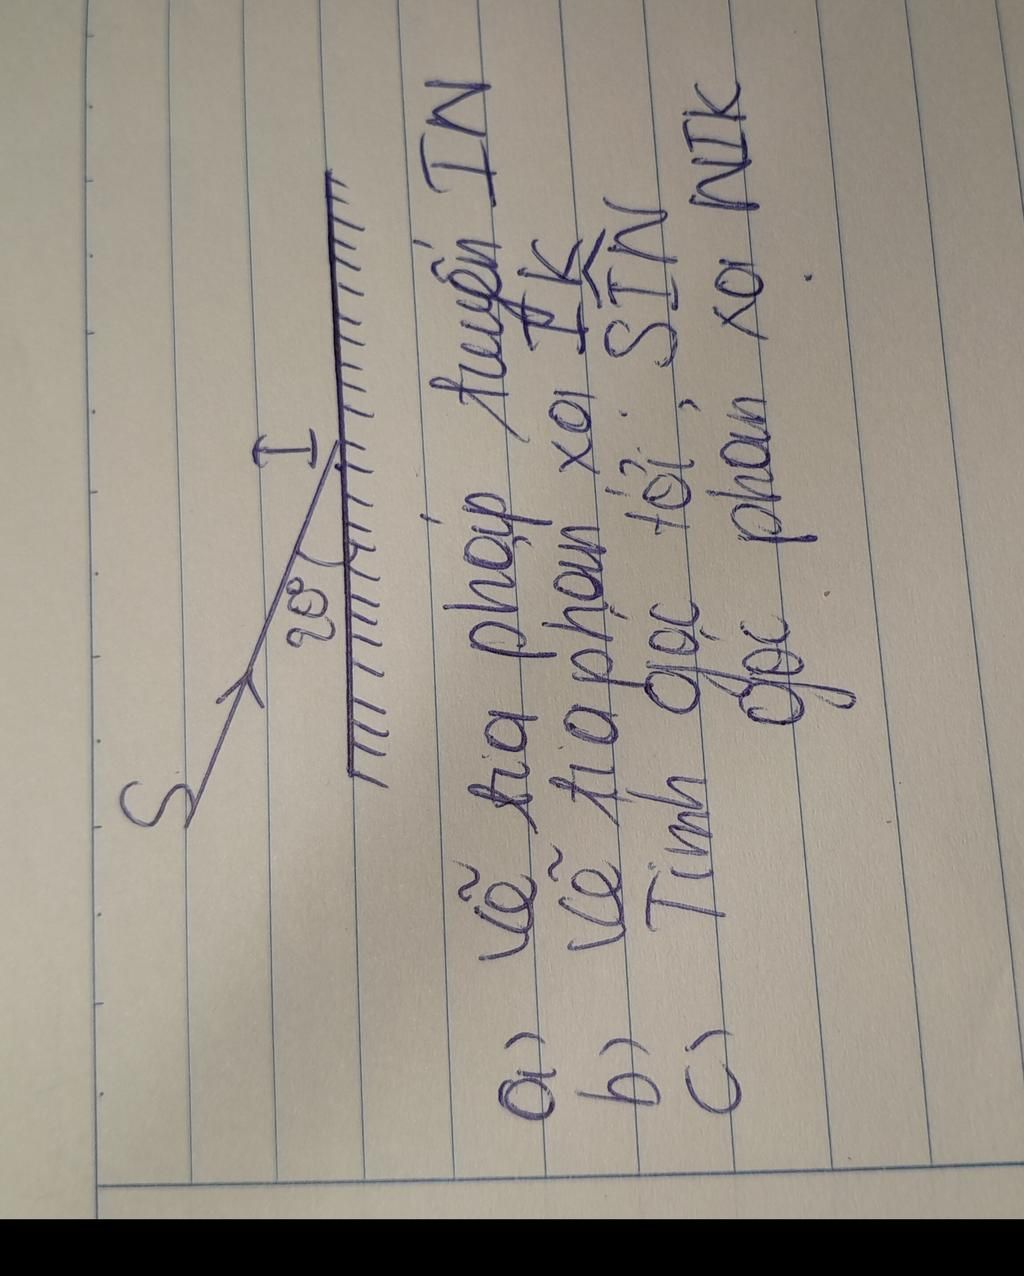 S
I
20°
a) Vẽ tia pháp tuyến IN
b) Vẽ tia phản xạ IK
c) Tính góc tới SIN
góc phản xạ NIK